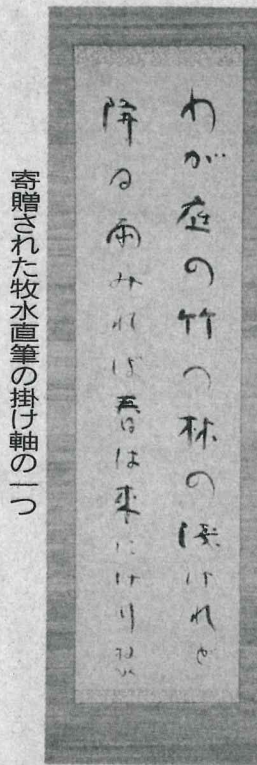 わが庭の竹の林の淺けれど
降る雨みれば春は来にけり
寄贈された牧水直筆の掛け軸の一つ